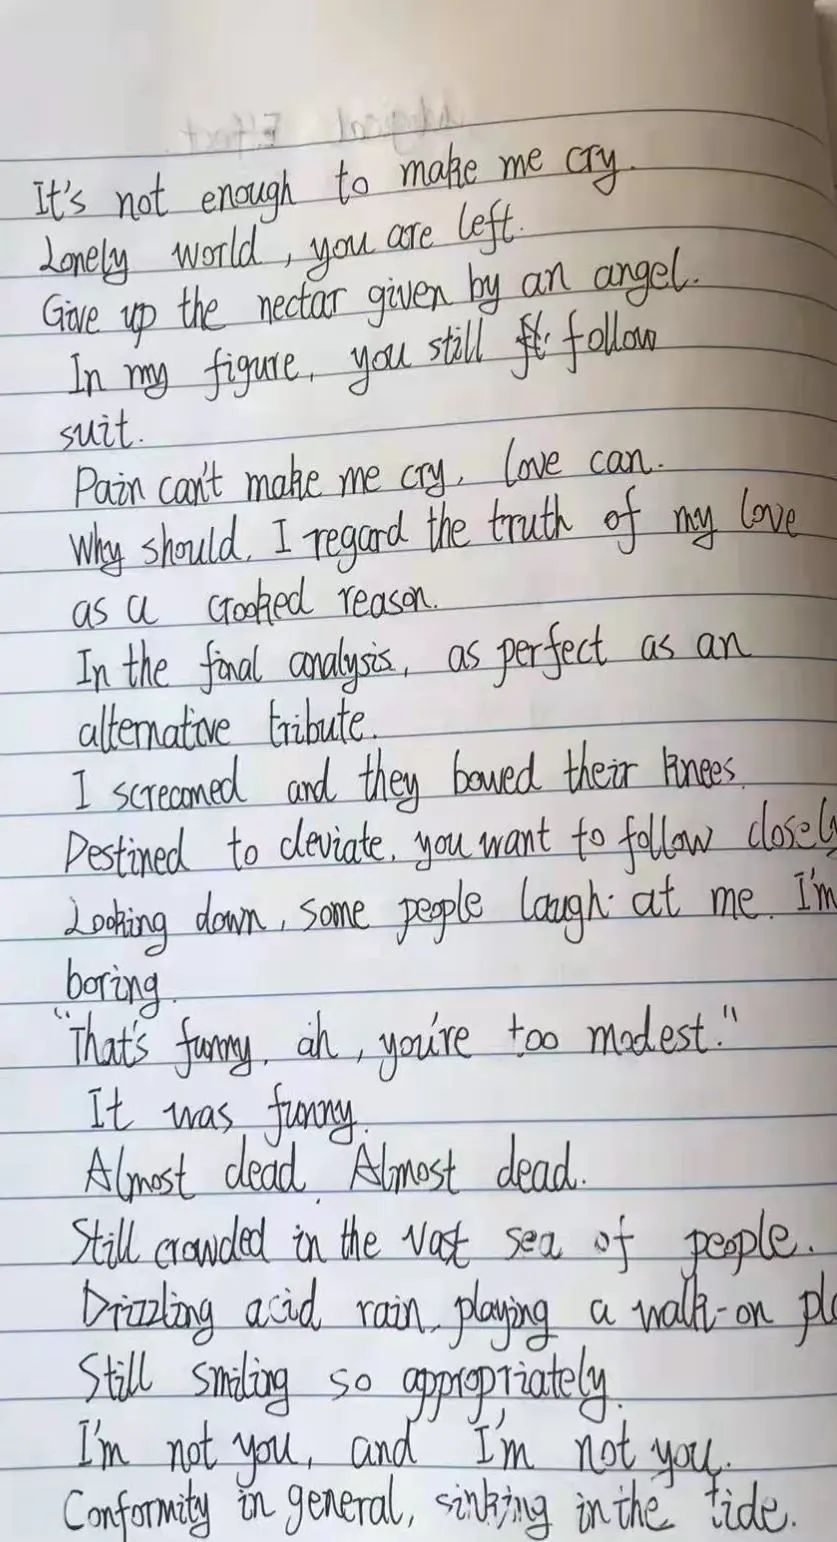 It's not enough to make me cry.
Lonely world, you are left.
Give up the nectar given by an angel.
In my figure, you still follow
suit.
Pain can't make me cry, love can.
Why should, I regard the truth of my love
as a crooked reason.
In the final analysis, as perfect as an
alternative tribute.
I screamed and they bowed their knees.
Destined to deviate, you want to follow closely
Looking down, some people laugh at me. I'm
boring.
"That's funny, ah, you're too modest."
It was funny.
Almost dead. Almost dead.
Still crowded in the vast sea of people.
Drizzling acid rain, playing a walk-on
Still smiling so appropriately.
I'm not you, and I'm not you.
Conformity in general, sinking in the tide.